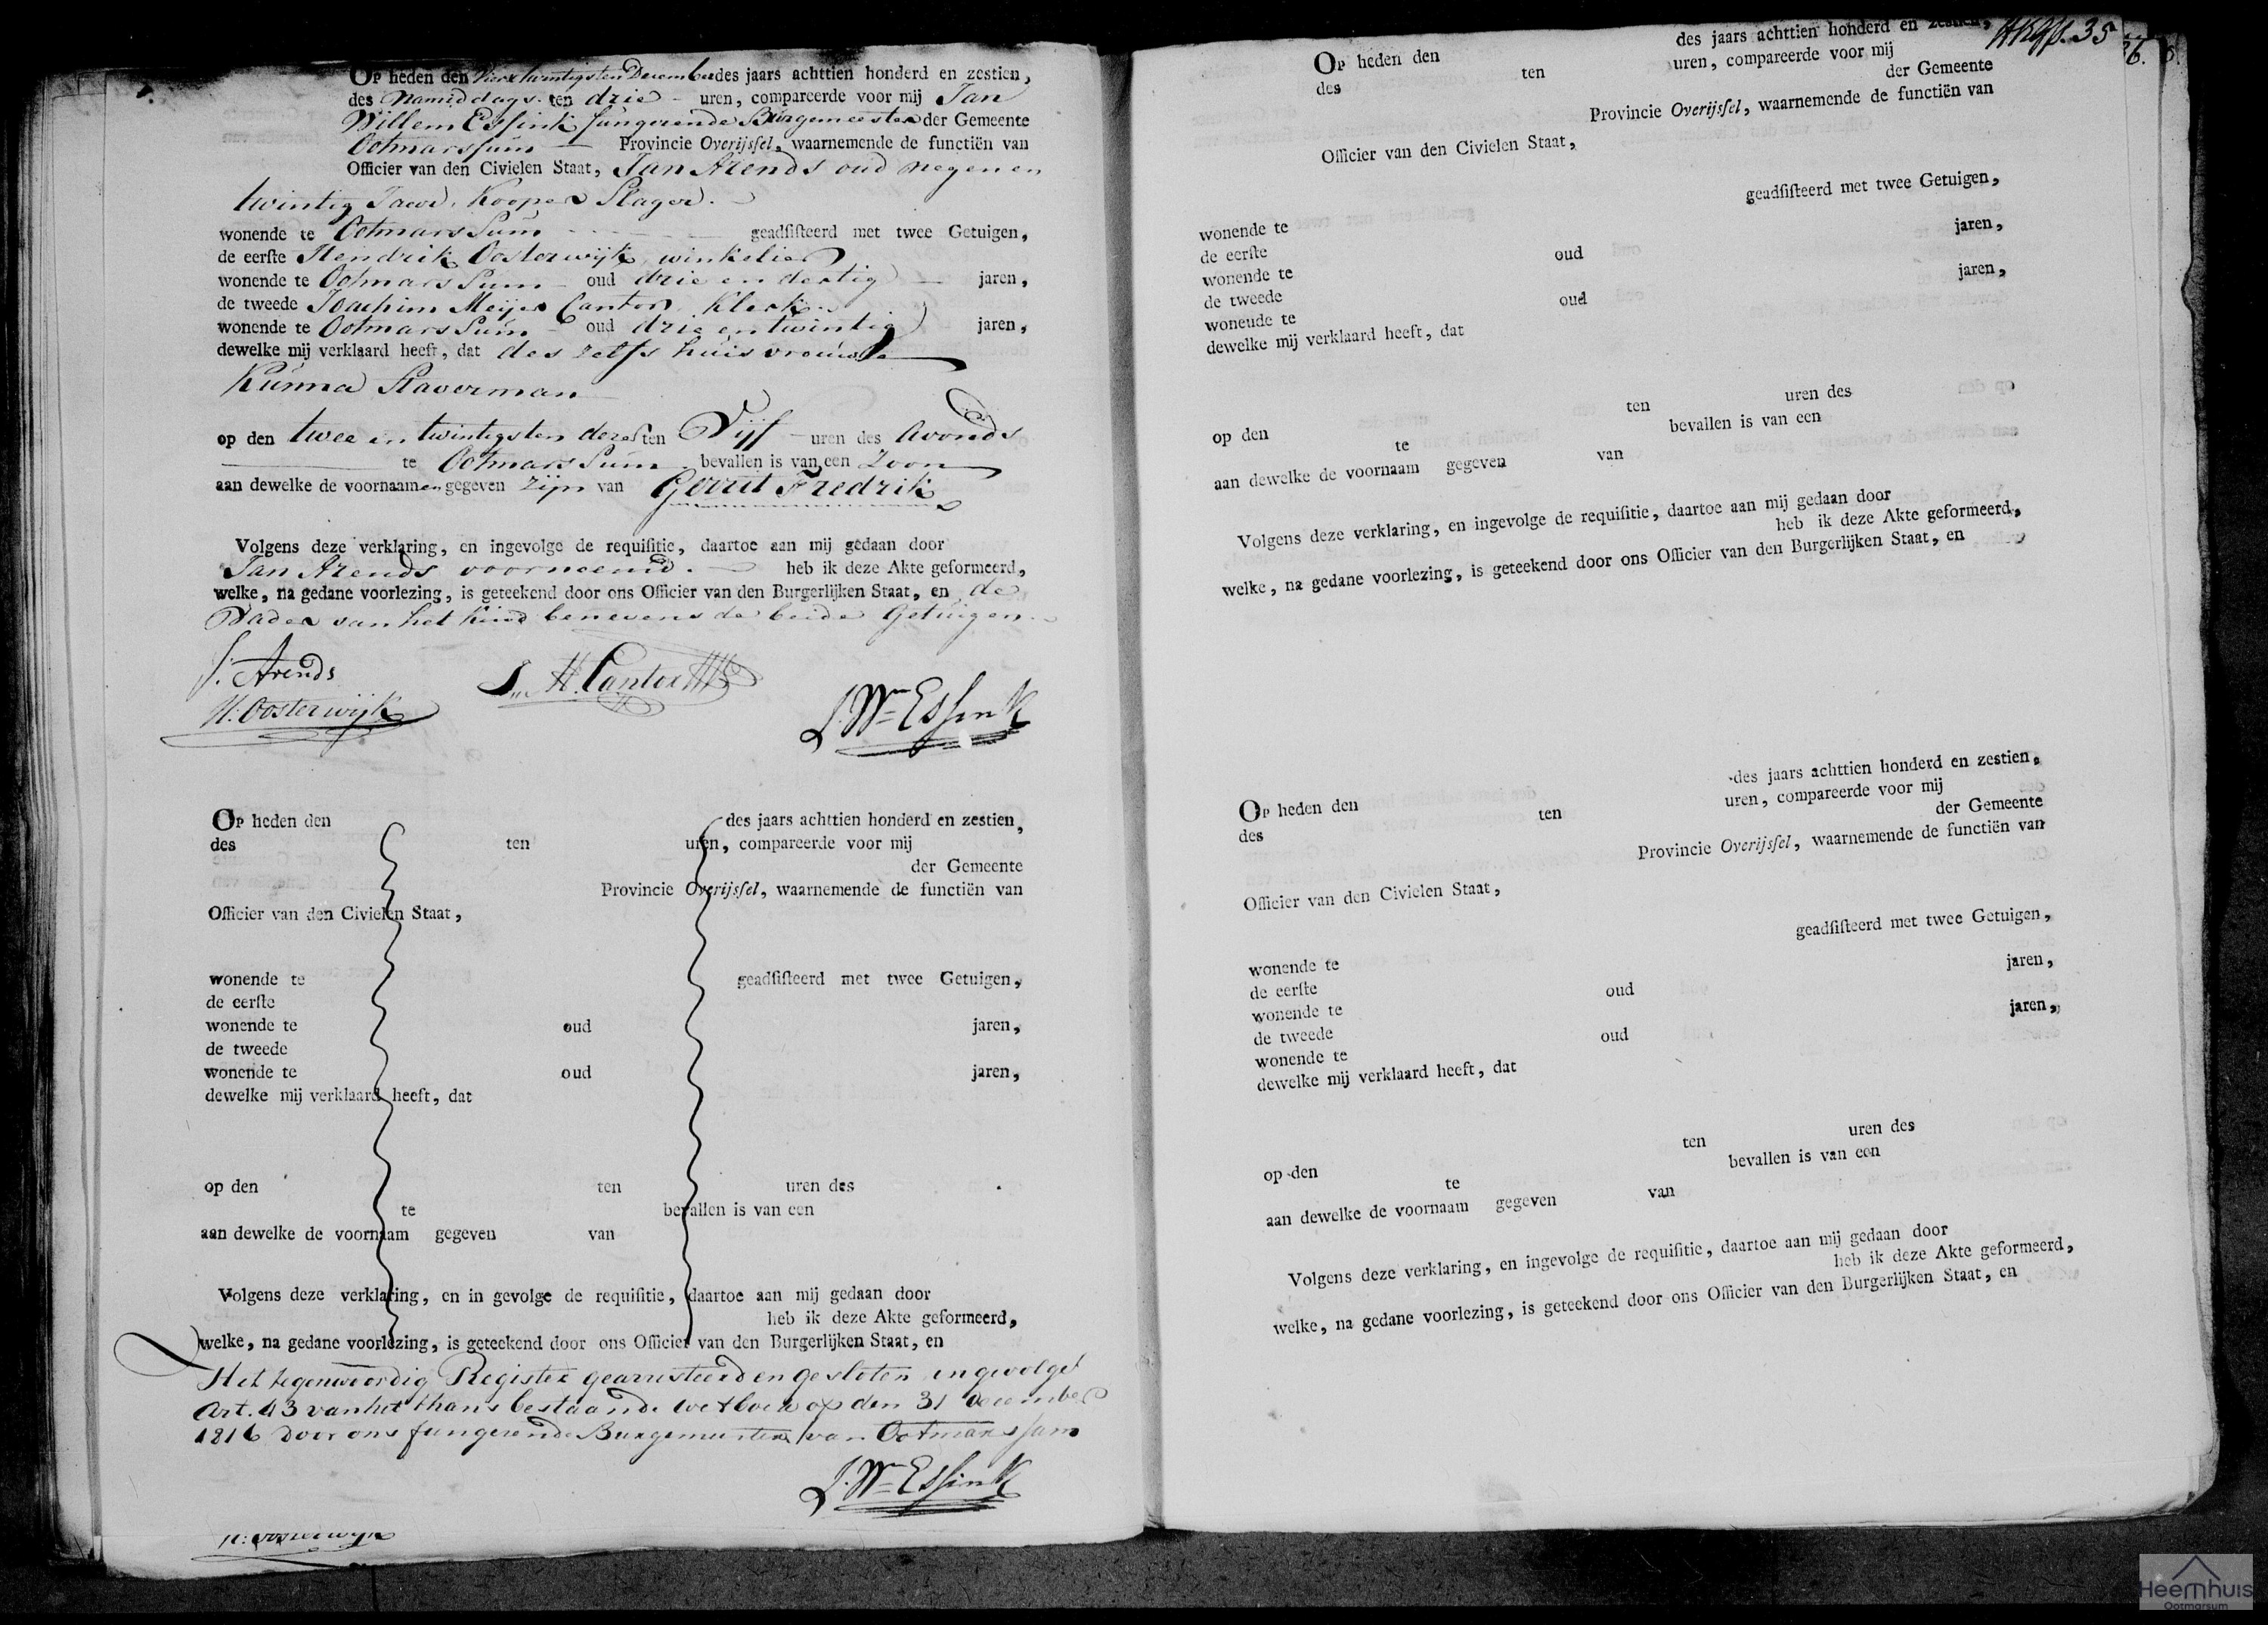 Op heden den vier en twintigsten December des jaars achttien honderd en zestien,
des Namiddags ten drie uren, compareerde voor mij Jan
Willem Essink fungerende Burgemeester der Gemeente
Ootmarssum Provincie Overijsſel, waarnemende de functiën van
Officier van den Civielen Staat, Jan Arends oud negen en
twintig Jaar, Koopers Slager.
wonende te OotmarsSum geadſiſteerd met twee Getuigen,
de eerſte Hendrik Oosterwijk, winkelier
wonende te OotmarsSum oud drie en dertig jaren,
de tweede Joachim Meijer Cantor, Klerk
wonende te OotmarsSum oud drie en twintig jaren,
dewelke mij verklaard heeft, dat des zelfs huisvrouw
Kunna Staverman
op den twee en twintigsten dezes ten Vijf uren des Avonds
te OotmarsSum bevallen is van een Zoon
aan dewelke de voornaamen gegeven zijn van Gerrit Fredrik
Volgens deze verklaring, en ingevolge de requiſitie, daartoe aan mij gedaan door
Jan Arends voornoemd. heb ik deze Akte geformeerd,
welke, na gedane voorlezing, is geteekend door ons Officier van den Burgerlijken Staat, en de
Vader van het Kind benevens de beide Getuigen
J. Arends
H. Oosterwijk
J. W Essink
Op heden den des jaars achttien honderd en zestien,
des ten uren, compareerde voor mij
der Gemeente
Provincie Overijsſel, waarnemende de functiën van
Officier van den Civielen Staat,
wonende te geadſiſteerd met twee Getuigen,
de eerſte
wonende te oud jaren,
de tweede
wonende te oud jaren,
dewelke mij verklaard heeft, dat
op den ten uren des
te bevallen is van een
aan dewelke de voornaam gegeven van
Volgens deze verklaring, en in gevolge de requiſitie, daartoe aan mij gedaan door
heb ik deze Akte geformeerd,
welke, na gedane voorlezing, is geteekend door ons Officier van den Burgerlijken Staat, en
Het tegenwoordig Register gearresteerd en gesloten ingevolge
Art. 43 van het thans bestaande wetboek op den 31 december
1816 door ons fungerende Burgemeester van Ootmarssum
J. W Essink
H: Oosterwijk
35
Op heden den des jaars achttien honderd en zestien,
des ten uren, compareerde voor mij
der Gemeente
Provincie Overijsſel, waarnemende de functiën van
Officier van den Civielen Staat,
geadſiſteerd met twee Getuigen,
wonende te
de eerſte jaren,
wonende te oud
de tweede jaren,
woneude te oud
dewelke mij verklaard heeft, dat
op den ten uren des
te bevallen is van een
aan dewelke de voornaam gegeven van
Volgens deze verklaring, en ingevolge de requiſitie, daartoe aan mij gedaan door
heb ik deze Akte geformeerd,
welke, na gedane voorlezing, is geteekend door ons Officier van den Burgerlijken Staat, en
Op heden den des jaars achttien honderd en zestien,
des ten uren, compareerde voor mij
der Gemeente
Provincie Overijsſel, waarnemende de functiën van
Officier van den Civielen Staat,
geadſiſteerd met twee Getuigen,
wonende te
de eerſte jaren,
wonende te oud
de tweede jaren,
wonende te oud
dewelke mij verklaard heeft, dat
op den ten uren des
te bevallen is van een
aan dewelke de voornaam gegeven van
Volgens deze verklaring, en ingevolge de requiſitie, daartoe aan mij gedaan door
heb ik deze Akte geformeerd,
welke, na gedane voorlezing, is geteekend door ons Officier van den Burgerlijken Staat, en
Heemhuis
Ootmarsum